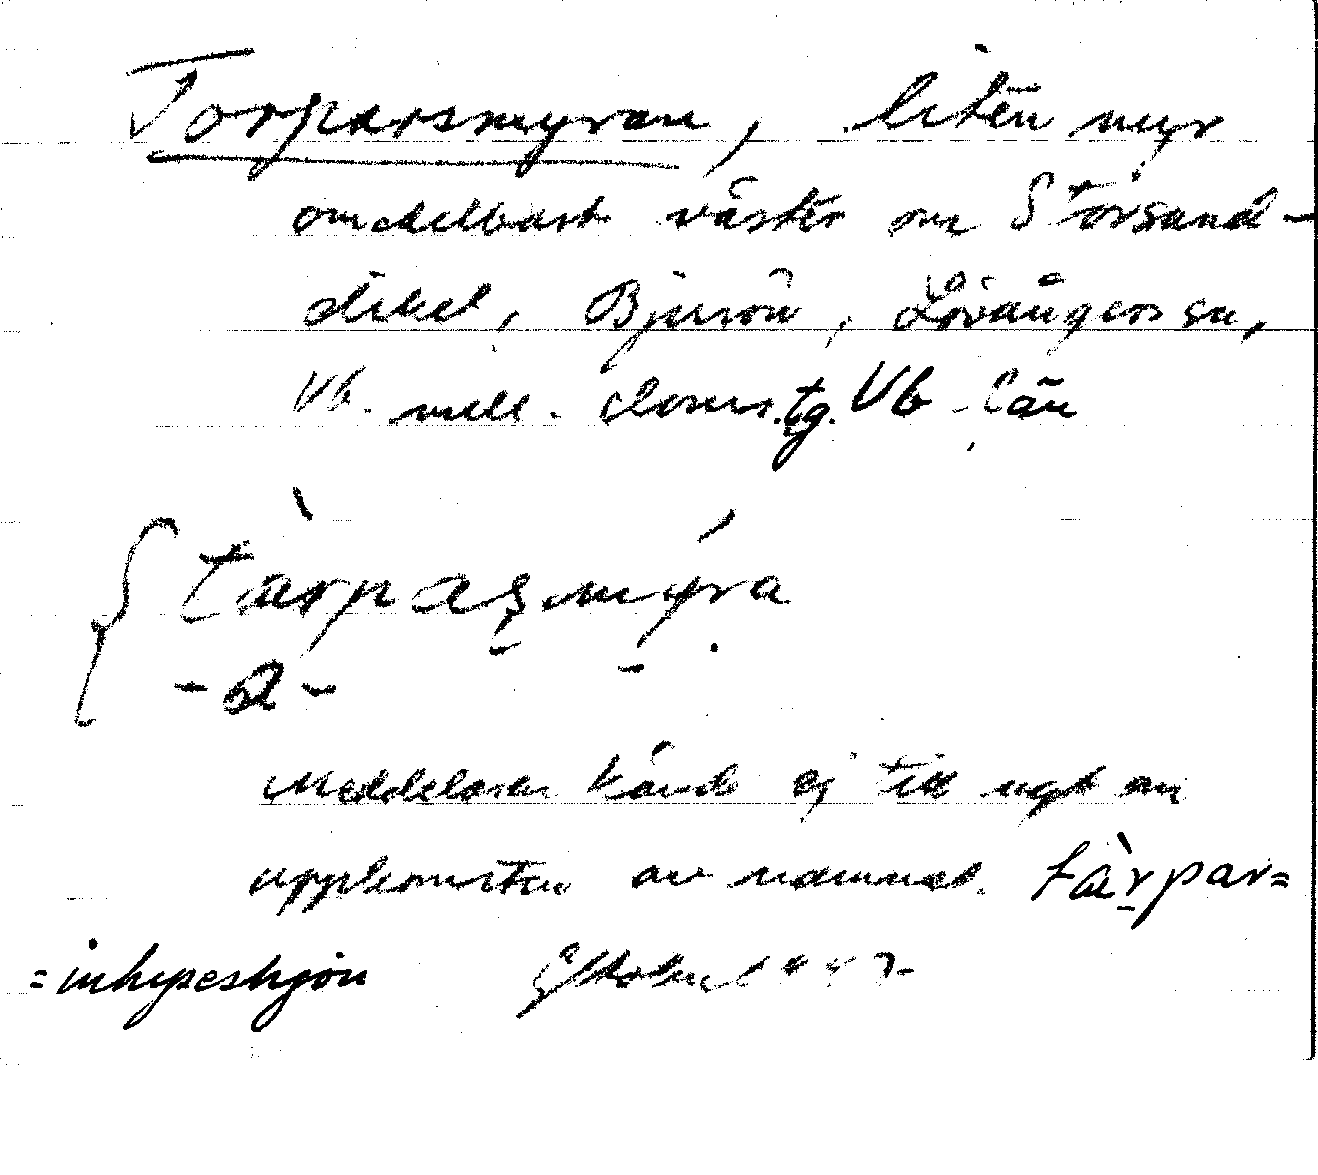 Torparsmyran, liten myr
omedelbart väster om Storsand-
diket, Bjurön, Lövångers sn,
Vb. mell. domss.tg. Vb län
{ tàrpasmýra
- a -
Meddelaren kände ej till ngt om
uppkomsten av namnet. tàrpar=
=inhyseshjon